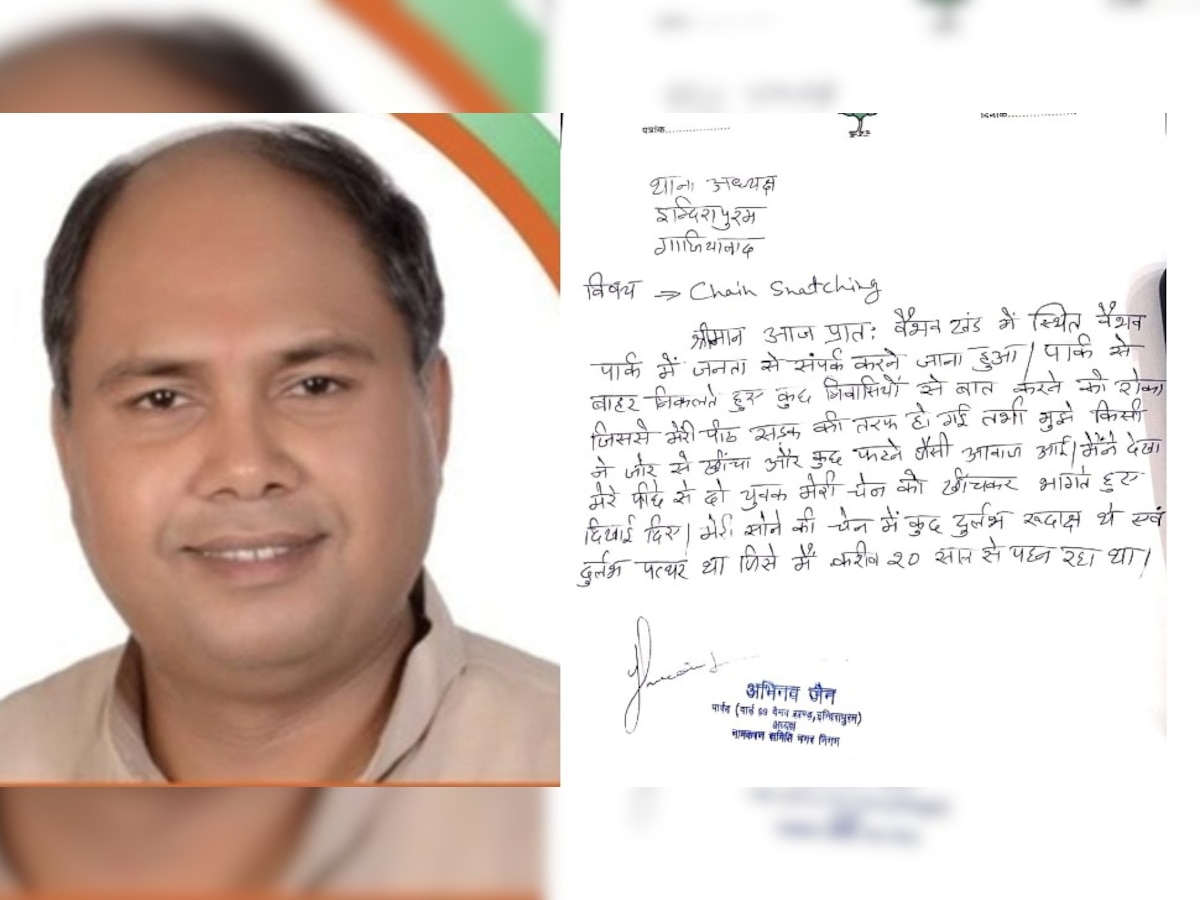 पत्रांक..................
दिनांक..................
थाना अध्यक्ष
इन्दिरापुरम
गाजियाबाद
विषय → Chain Snatching
श्रीमान आज प्रात: वैभव खंड में स्थित वैभव
पार्क में जनता से संपर्क करने जाना हुआ। पार्क से
बाहर निकलते हुए कुछ निवासियों से बात करने को रोका
जिससे मेरी पीठ सड़क की तरफ हो गई तभी मुझे किसी
ने जोर से खींचा और कुछ फटने जैसी आवाज आई। मैंने देखा
मेरे पीछे से दो युवक मेरी चेन को खींचकर भागते हुए
दिखाई दिए। मेरी सोने की चेन में कुछ दुर्लभ रूद्राक्ष थे एवं
दुर्लभ पत्थर था जिसे मैं करीब २० साल से पहन रहा था।
अभिनव जैन
पार्षद (वार्ड 99 वैभव खण्ड, इन्दिरापुरम)
अध्यक्ष
नामकरण समिति नगर निगम